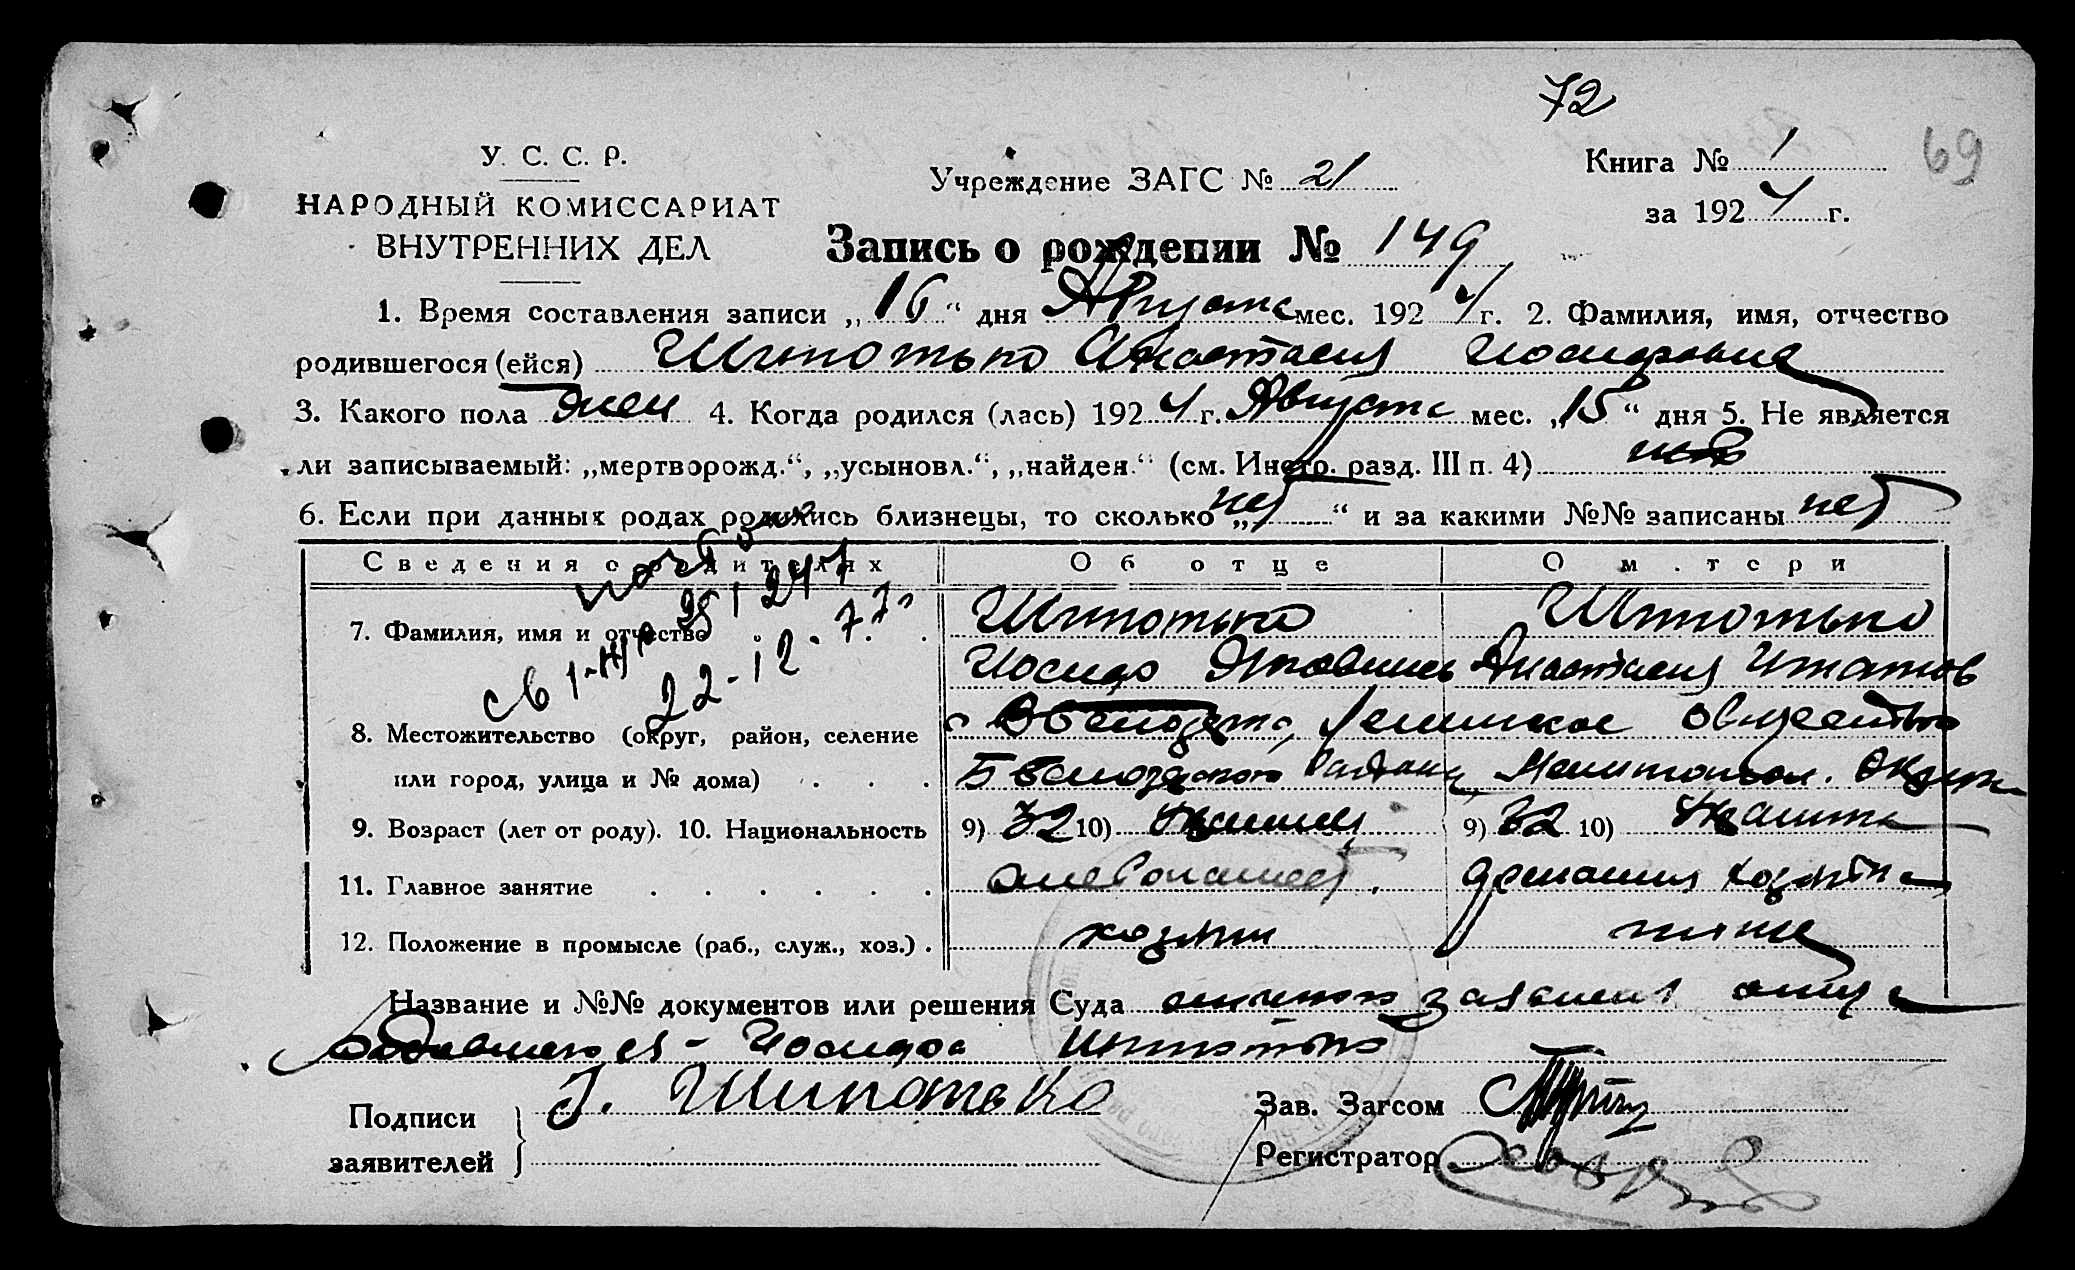 72
69
У. С. С. Р.
Учреждение ЗАГС № 21
Книга № 1
НАРОДНЫЙ КОМИССАРИАТ
за 1924 г.
ВНУТРЕННИХ ДЕЛ
Запись о рождении № 149
1. Время составления записи „16“ дня Августа мес. 1924 г. 2. Фамилия, имя, отчество
родившегося (ейся) Шипотько Анастасия Иосифовна
3. Какого пола жен 4. Когда родился (лась) 1924 г. Августа мес. „15“ дня 5. Не является
ли записываемый: „мертворожд.“, „усыновл.“, „найден.“ (см. Инстр. разд. III п. 4) нет
6. Если при данных родах родились близнецы, то сколько „нет“ и за какими №№ записаны нет
Сведения о родителях
Об отце
О матери
7. Фамилия, имя и отчество
Шипотько
Шипотько
Иосиф
Анастасия Игнатов
св 1-
22-12-77
8. Местожительство (округ, район, селение
общества
или город, улица и № дома)
района, Мелитопол. Округ
9. Возраст (лет от роду). 10. Национальность
9) 32 10) Украинец
9) 32 10) Украинка
11. Главное занятие
хлебопашест.
домашняя хозяйка
12. Положение в промысле (раб., служ., хоз.)
хозяин
Название и №№ документов или решения Суда личного заявления отца
родившегося - Иосифа Шипотько
Подписи
заявителей
И. Шипотько
Зав. Загсом
Регистратор